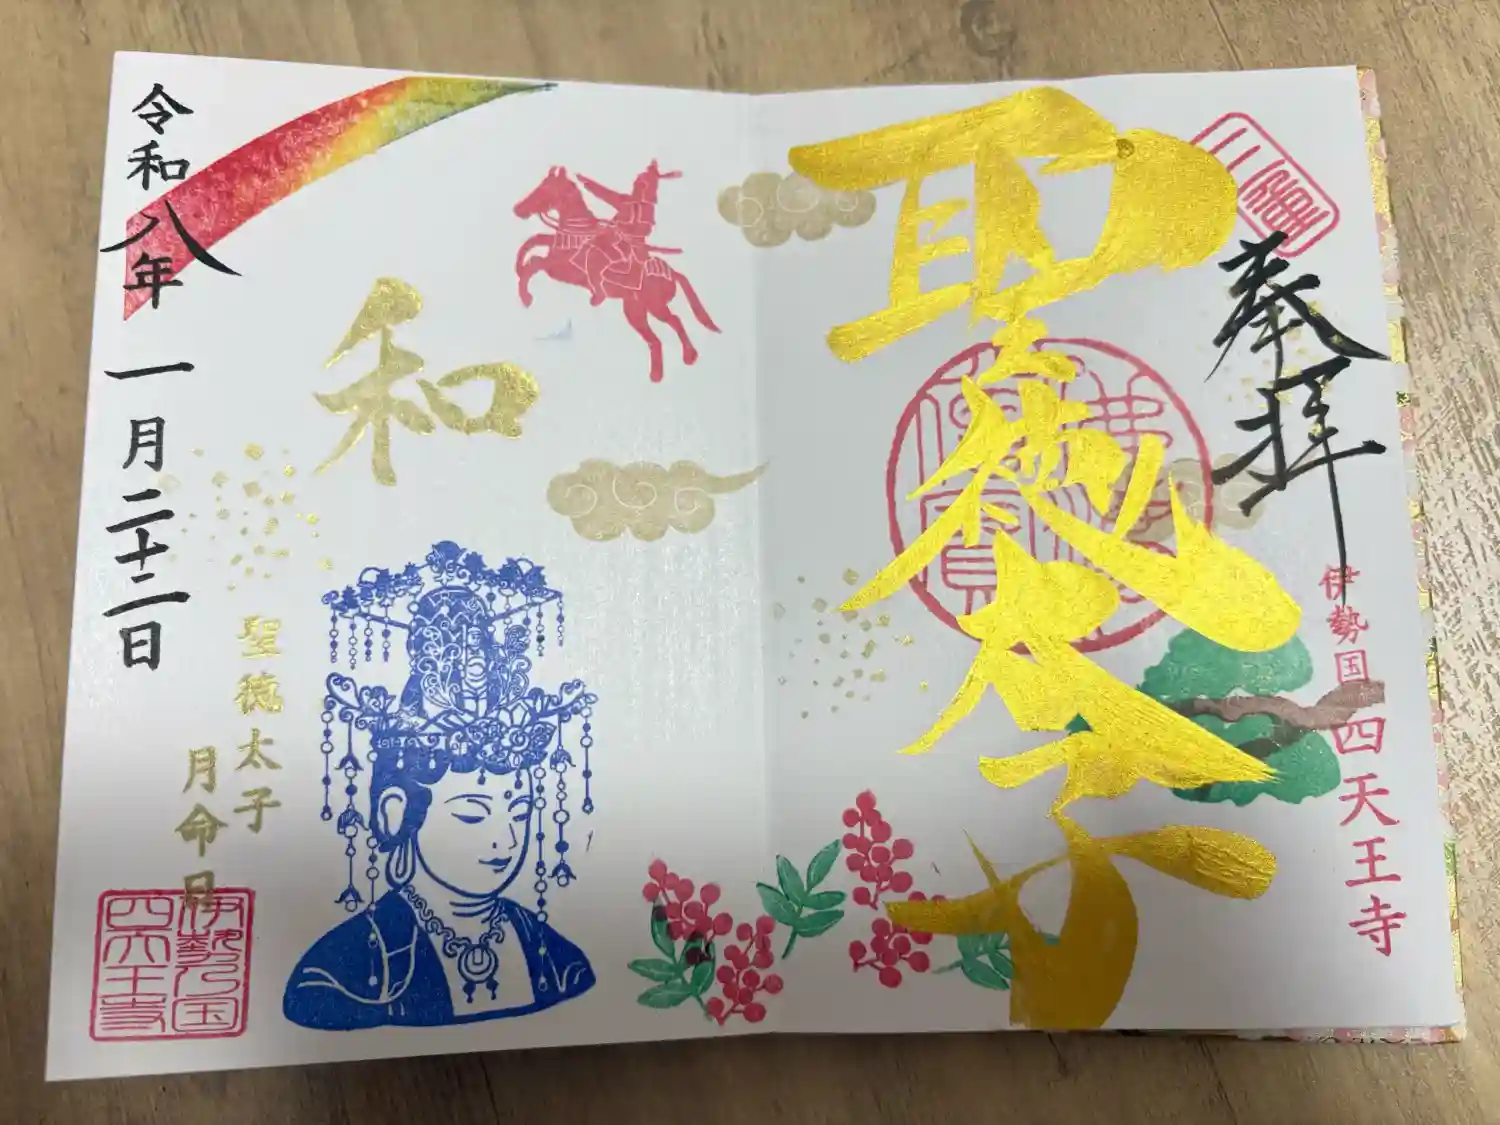 奉拝
伊勢国 四天王寺
聖徳太子
和
聖徳太子
月命日
令和八年 一月二十二日
伊勢之国
四天王寺